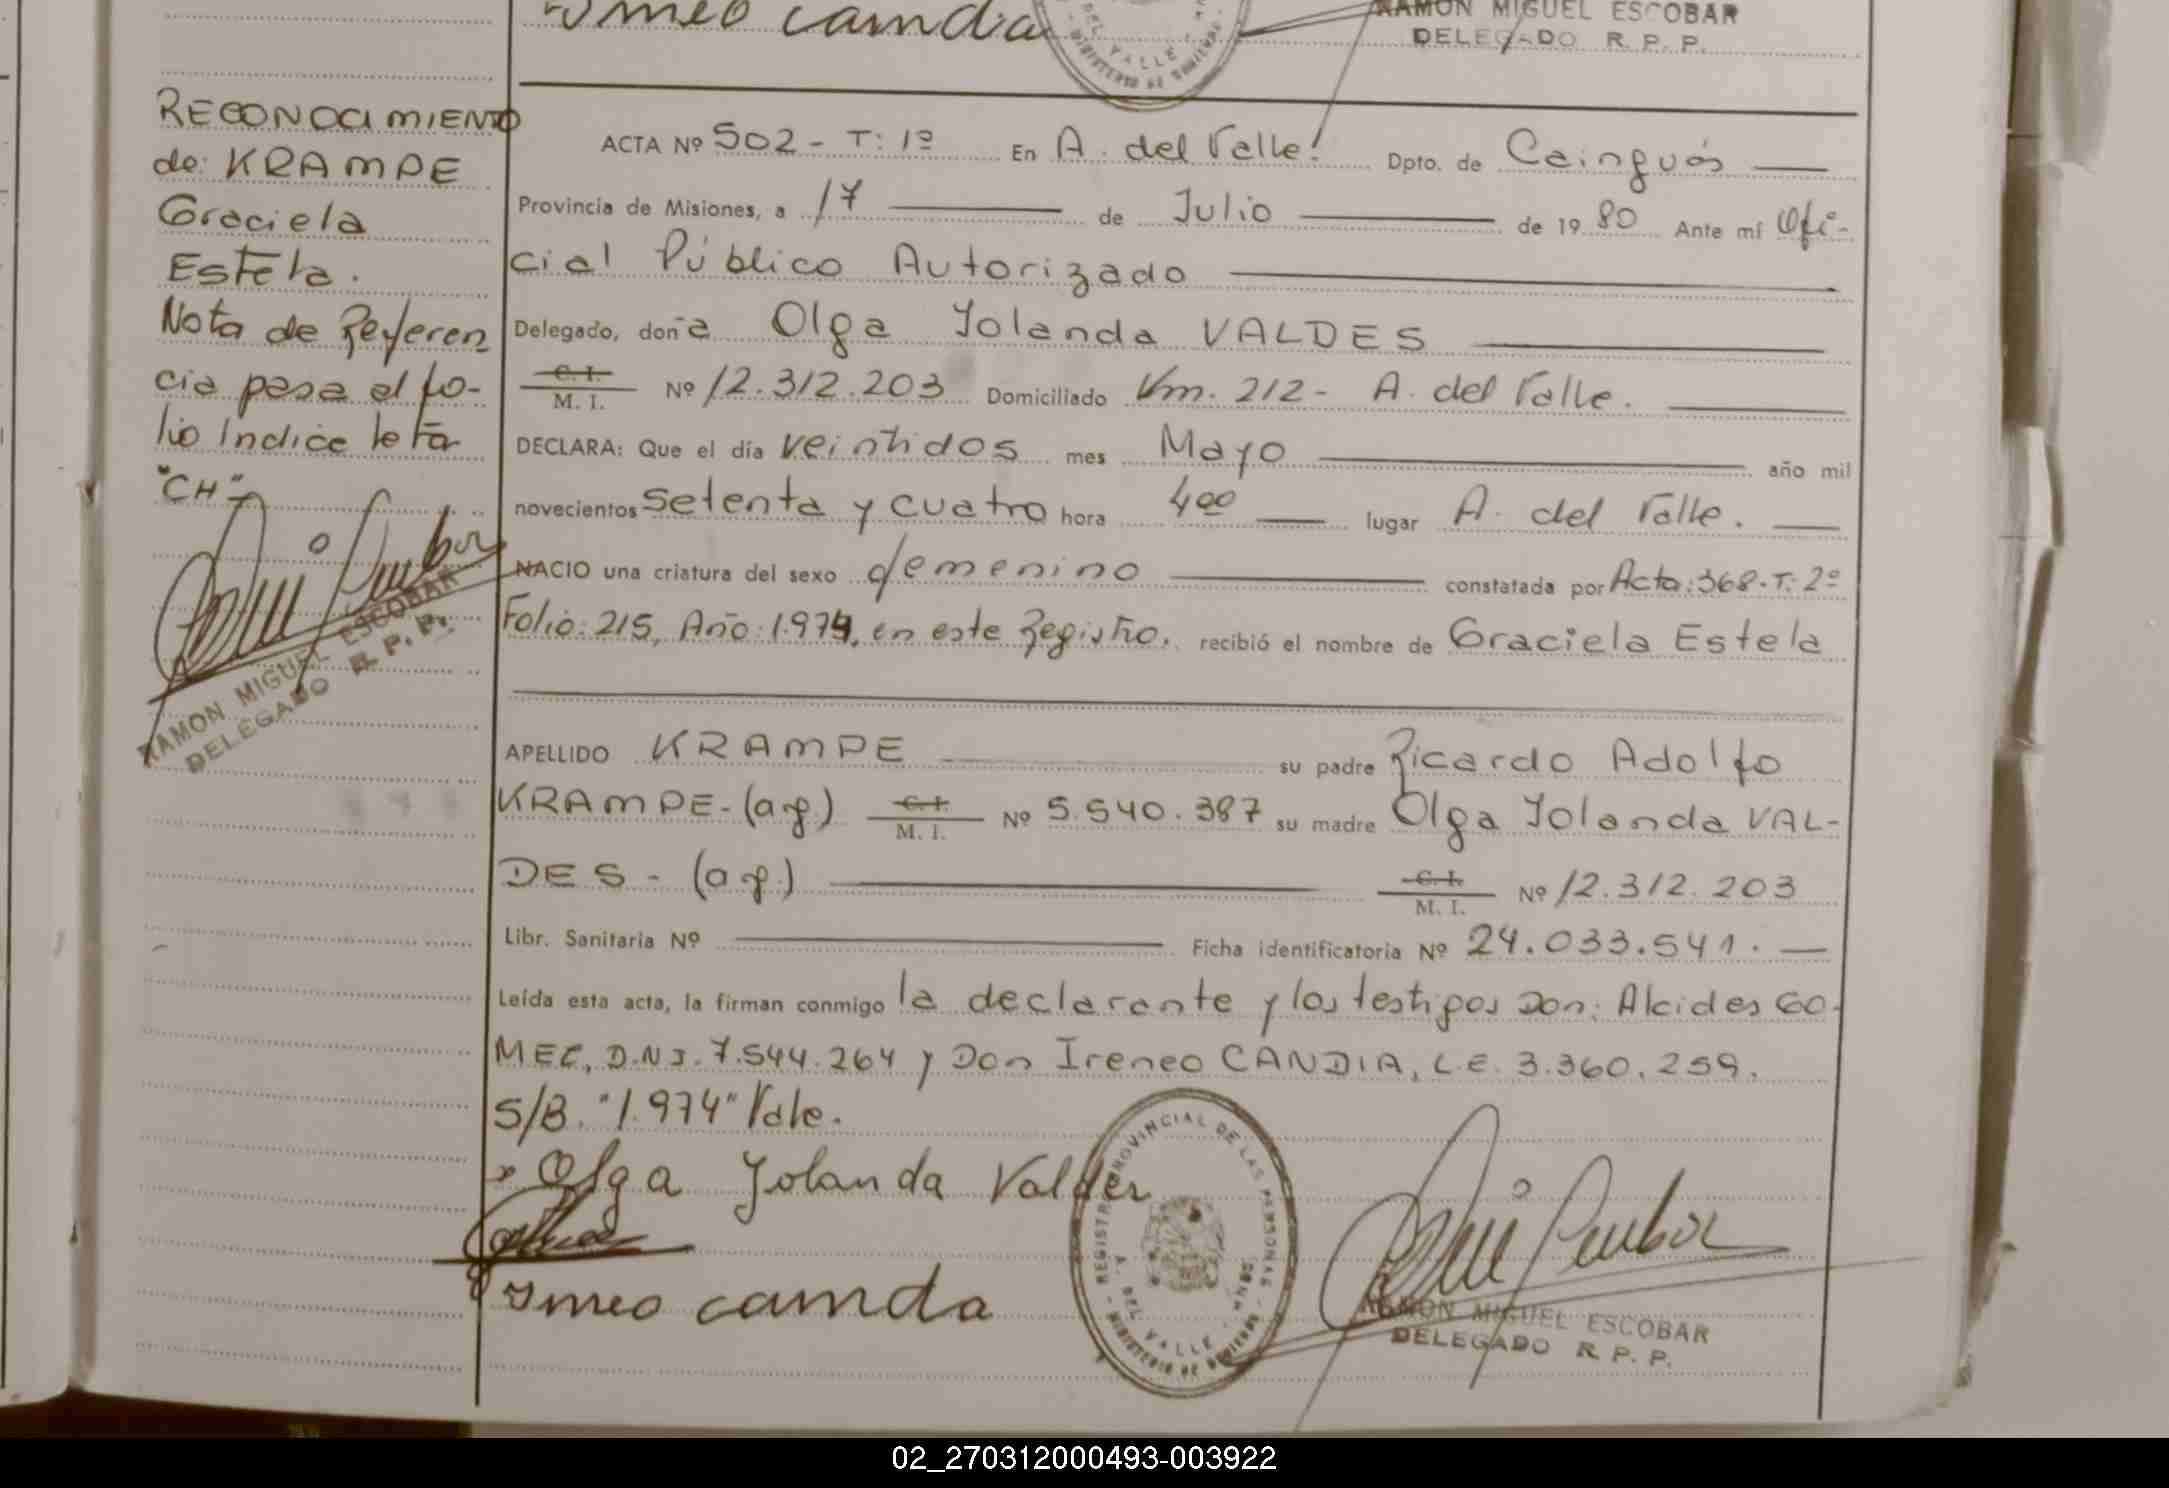 Irineo camdia
RAMON MIGUEL ESCOBAR
DELEGADO R. P. P.
RECONOCIMIENTO
de: KRAMPE
Graciela
Estela.
Nota de Referen
cia pasa al fo-
lio Indice letra
"CH"-
RAMON MIGUEL ESCOBAR
DELEGADO R. P. P.
ACTA Nº 502 - T: 1º En A. del Valle! Dpto. de Cainguás
Provincia de Misiones, a 17 de Julio de 1980 Ante mí Ofi-
cial Público Autorizado
Delegado, doña Olga Yolanda VALDES
C. I. M. I. Nº 12.312.203 Domiciliado Km. 212 - A. del Valle.
DECLARA: Que el día veintidos mes Mayo año mil
novecientos setenta y cuatro hora 4ºº lugar A. del Valle.
NACIO una criatura del sexo femenino constatada por Acta: 368. T: 2º
Folio: 215, Año: 1.974, en este Registro. recibió el nombre de Graciela Estela
APELLIDO KRAMPE su padre Ricardo Adolfo
KRAMPE - (arg.) C. I. M. I. Nº 5.540.387 su madre Olga Yolanda VAL-
DES - (arg.) C. I. M. I. Nº 12.312.203
Libr. Sanitaria Nº Ficha identificatoria Nº 24.033.541.
Leída esta acta, la firman conmigo la declarante y los testigos Don: Alcides GO-
MEZ, D.N.I. 7.544.264 y Don Ireneo CANDIA, L.E. 3.360.259.
S/B. "1.974" Vale.
Olga Yolanda Valdes
Irineo camdia
REGISTRO PROVINCIAL DE LAS PERSONAS
A. DEL VALLE - MNES
MINISTERIO DE GOBIERNO
RAMON MIGUEL ESCOBAR
DELEGADO R. P. P.
02_270312000493-003922